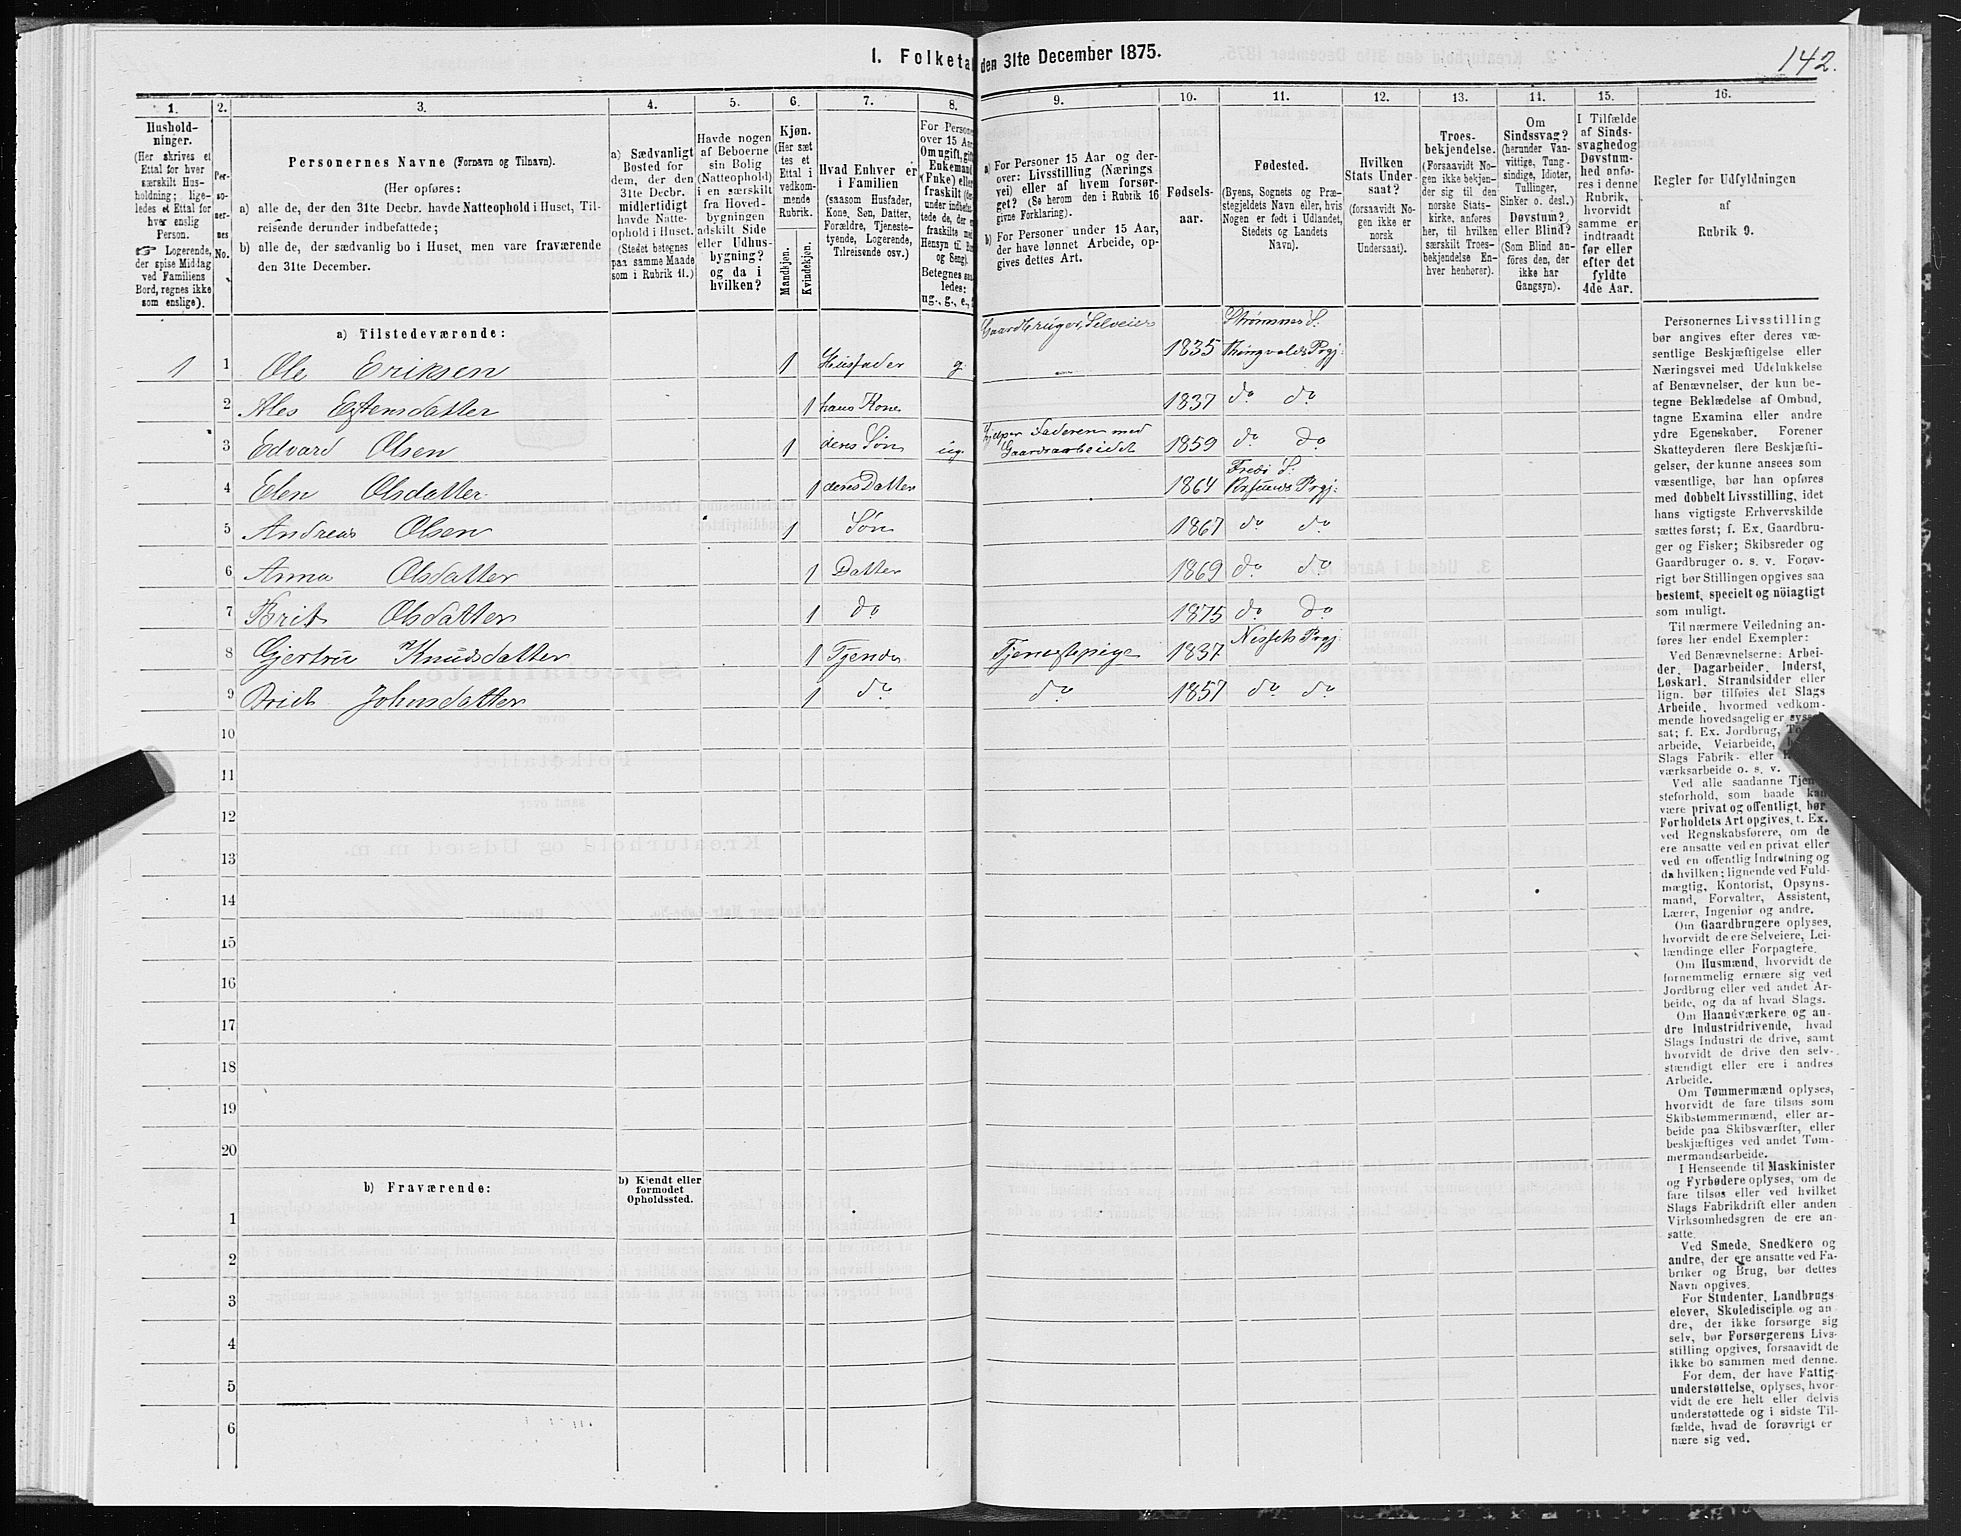 1. Folketal den 31te December 1875.
142.
1. 2. 3. 4. 5. 6. 7. 8. 9. 10. 11. 12. 13. 14. 15. 16.
Hushold-
ninger.
(Her skrives et
Ettal for hver
særskilt Hus-
holdning; lige-
ledes et Ettal for
hver enslig
Person.
☞ Logerende,
der spise Middag
ved Familiens
Bord, regnes ikke
som enslige).
Per-
so-
ner-
nes
No.
Personernes Navne (Fornavn og Tilnavn).
(Her opføres:
a) alle de, der den 31te Decbr. havde Natteophold i Huset, Til-
reisende derunder indbefattede;
b) alle de, der sædvanlig bo i Huset, men vare fraværende
den 31te December.
a) Sædvanligt
Bosted for
dem, der den
31te Decbr.
midlertidigt
havde Natte-
ophold i Huset.
(Stedet betegnes
paa samme Maade
som i Rubrik 11.)
Havde nogen
af Beboerne
sin Bolig
(Natteophold)
i en særskilt
fra Hoved-
bygningen
adskilt Side
eller Udhus-
bygning?
og da i
hvilken?
Kjøn.
(Her sæt-
tes et
Ettal i
vedkom-
mende
Rubrik.
Mandkjøn.
Kvindekjøn.
Hvad Enhver er
i Familien
(saasom Husfader,
Kone, Søn, Datter,
Forældre, Tjeneste-
tyende, Logerende,
Tilreisende osv.)
For Persone
over 15 Aar
Om ugift, gift
Enkemand
(Enke) eller
fraskilt (de
under indbefat-
tede de, der e
fraskilte med
Hensyn til Bo
og Seng).
Betegnes saa
ledes:
ug., g., e.,
a) For Personer 15 Aar og der-
over: Livsstilling (Nærings
vei) eller af hvem forsør-
get? (Se herom den i Rubrik 16
givne Forklaring).
b) For Personer under 15 Aar,
der have lønnet Arbeide, op-
gives dettes Art.
Fødsels-
aar.
Fødested.
(Byens, Sognets og Præ-
stegjeldets Navn eller, hvis
Nogen er født i Udlandet,
Stedets og Landets
Navn).
Hvilken
Stats Under-
saat?
(forsaavidt No-
gen ikke er
norsk
Undersaat).
Troes-
bekjendelse.
(Forsaavidt No-
gen ikke bekjen-
der sig til den
norske Stats-
kirke, anføres
her, til hvilken
særskilt Troes-
bekjendelse En-
hver henhører).
Om
Sindssvag?
(herunder Van-
vittige, Tung-
sindige, Idioter,
Tullinger,
Sinker o. desl.)
Døvstum?
eller Blind?
(Som Blind an-
føres den, der
ikke har
Gangsyn).
I Tilfælde
af Sinds-
svaghed og
Døvstum-
hed anfø-
res i denne
Rubrik,
hvorvidt
samme er
indtraadt
før eller
efter det
fyldte
4de Aar.
Regler for Udfyldningen
af
Rubrik 9.
a) Tilstedeværende:
Gaardbruger, Selveier Strømsnes S:
1 1 Ole Eriksen 1 Husfader g. 1835 Thingvolds Prgj:
2 Ales Estensdatter 1 hans Kone 1837 do do
3 Edvard Olsen 1 deres Søn ug. Hjelper Faderen med Gaardsarbeidet 1859 do do
4 Elen Olsdatter 1 deres Datter 1864 Fredø S: Prgj:
5 Andreas Olsen 1 Søn 1867 do do
6 Anna Olsdatter 1 Datter 1869 do do
7 Brit Olsdatter 1 do 1875 do do
8 Gjertru Knudsdatter 1 Tjener Tjenestepige 1837 Nessets Prgj:
9 Brit Johnsdatter 1 do do 1857 do do
10
11
12
13
14
15
16
17
18
19
20
b) Fraværende:
b) Kjendt eller
formodet
Opholdssted.
1
2
3
4
5
6
Personernes Livsstilling
bør angives efter deres væ-
sentlige Beskjæftigelse eller
Næringsvei med Udelukkelse
af Benævnelser, der kun be-
tegne Beklædelse af Ombud,
tagne Examina eller andre
ydre Egenskaber. Forener
Skatteyderen flere Beskjæfti-
gelser, der kunne ansees som
væsentlige, bør han opføres
med dobbelt Livsstilling, idet
hans vigtigste Erhvervskilde
sættes først; f. Ex. Gaardbru-
ger og Fisker; Skibsreder og
Gaardbruger o. s. v. Forøv-
rigt bør Stillingen opgives saa
bestemt, specielt og nöiagtigt
som muligt.
Til nærmere Veiledning an-
føres her endel Exempler:
Ved Benævnelserne: Arbei-
der, Dagarbeider, Inderst,
Løskarl, Strandsidder eller
lign. bør tilføies det Slags
Arbeide, hvormed vedkom-
mende hovedsagelig er syssel
sat; f. Ex. Jordbrug,
arbeide, Veiarbeide,
Slags Fabrik- eller
værksarbeide o. s. v.
Ved alle saadanne Tjene-
steforhold, som baade kan
være privat og offentligt, bør
Forholdets Art opgives, t. Ex.
ved Regnskabsførere, om de
ere ansatte ved en privat eller
ved en offentlig Indretning og
da hvilken; lignende ved Fuld-
mægtig, Kontorist, Opsyns-
mand, Forvalter, Assistent,
Lærer, Ingeniør og andre.
Om Gaardbrugere oplyses,
hvorvidt de ere Selveiere, Lei-
lændinge eller Forpagtere.
Om Husmænd, hvorvidt de
fornemmelig ernære sig ved
Jordbrug eller ved andet Ar-
beide, og da af hvad Slags.
Om Haandværkere og an-
dre Industridrivende, hvad
Slags Industri de drive, samt
hvorvidt de drive den selv-
stændigt eller ere i andres
Arbeide.
Om Tømmermænd oplyses,
hvorvidt de fare tilsøs som
Skibstømmermænd, eller ar-
beide paa Skibsværfter, eller
beskjæftiges ved andet Tøm-
mermandsarbeide.
I Henseende til Maskinister
og Fyrbødere oplyses, om de
fare tilsøs eller ved hvilket
Slags Fabrikdrift eller anden
Virksomhedsgren de ere an-
satte.
Ved Smede, Snedkere og
andre, der ere ansatte ved Fa-
briker og Brug, bør dettes
Navn opgives.
For Studenter, Landbrugs
elever, Skoledisciple og an
dre, der ikke forsørge sig
selv, bør Forsørgerens Livs-
stilling opgives, forsaavidt de
ikke bo sammen med denne.
For dem, der have Fattig-
understøttelse, oplyses, hvor-
vidt de ere helt eller delvis
understøttede og i sidste Til-
fælde, hvad de forøvrigt er
nære sig ved.